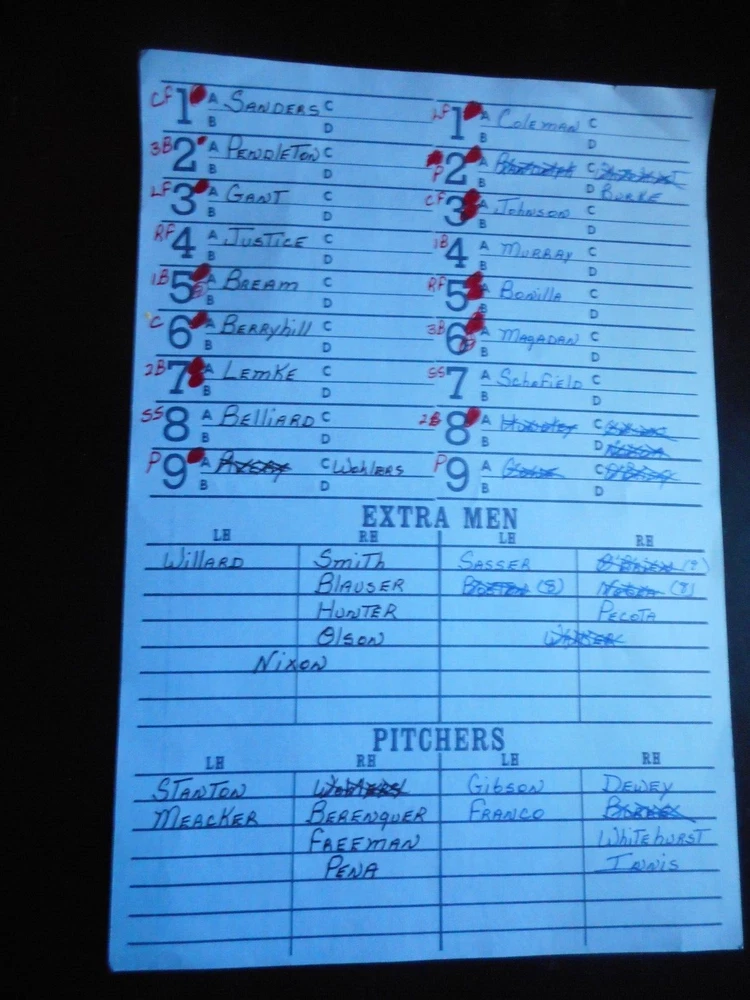 CF 1 A SANDERS C
B D
3B 2 A PENDLETON C
B D
LF 3 A GANT C
B D
RF 4 A JUSTICE C
B D
1B 5 A BREAM C
B D
C 6 A BERRYHILL C
B D
2B 7 A LEMKE C
B D
SS 8 A BELLIARD C
B D
P 9 A AVERY C WOHLERS
B D
LF 1 A COLEMAN C
B D
P 2 A C
B D BURKE
CF 3 A JOHNSON C
B D
1B 4 A MURRAY C
B D
RF 5 A BONILLA C
B D
3B 6 A MAGADAN C
B D
SS 7 A SCHOFIELD C
B D
2B 8 A C
B D
P 9 A C
B D
EXTRA MEN
LH RH LH RH
WILLARD SMITH SASSER O'BRIEN (9)
BLAUSER BOSTON (8) NOBOA (8)
HUNTER PECOTA
OLSON WALKER
NIXON
PITCHERS
LH RH LH RH
STANTON WOHLERS GIBSON DEWEY
MEACKER BERENQUER FRANCO BURKE
FREEMAN WHITEHURST
PENA INNIS